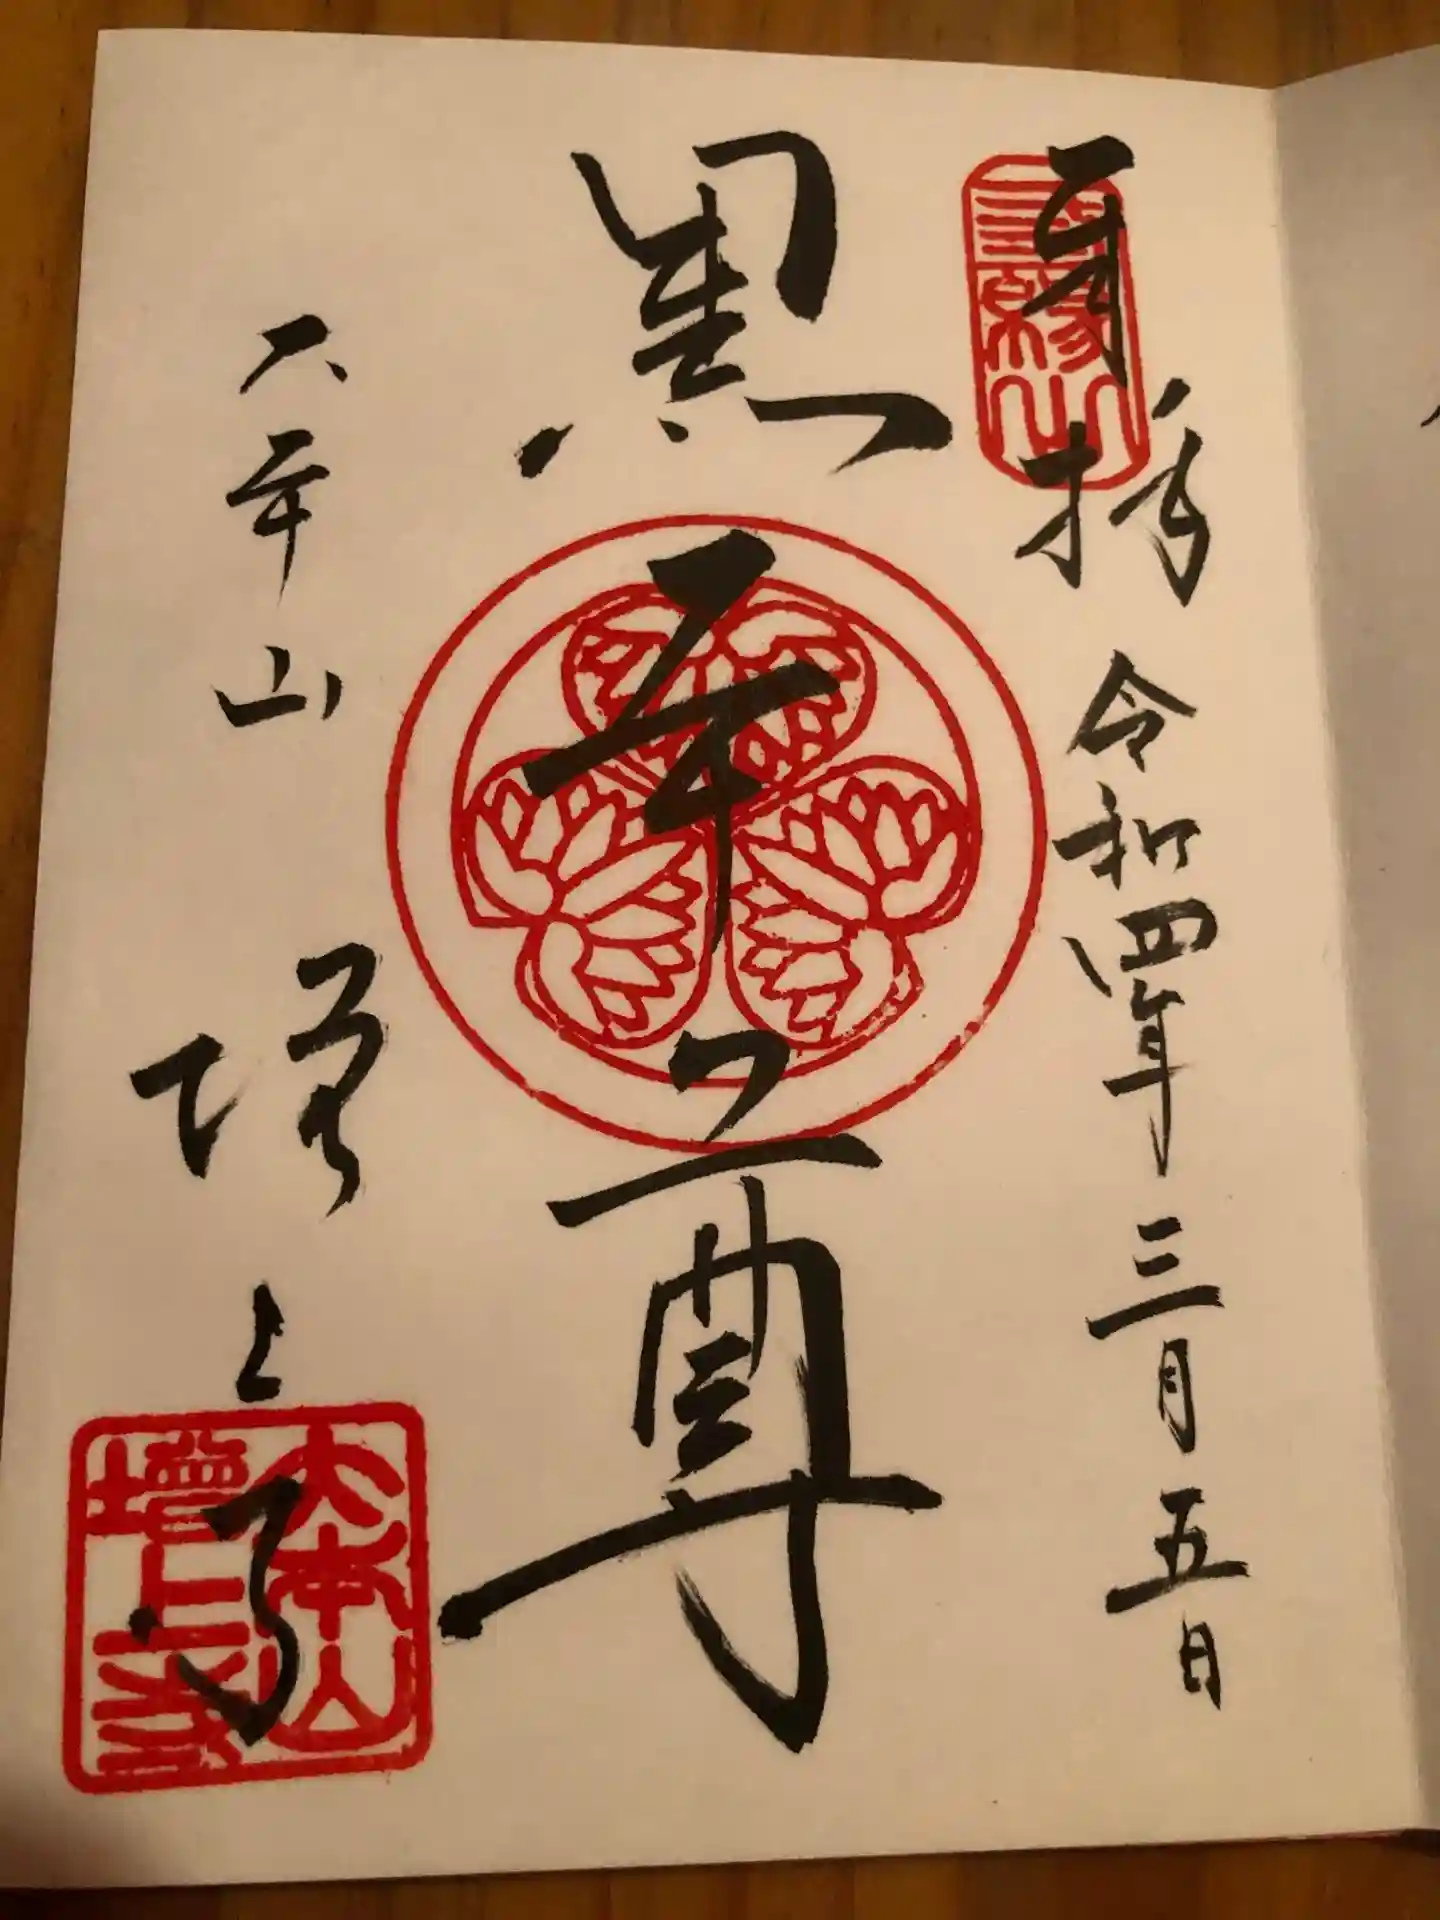 奉拝 令和四年三月五日
三縁山
黒本尊
大本山 増上寺
大本山
増上寺